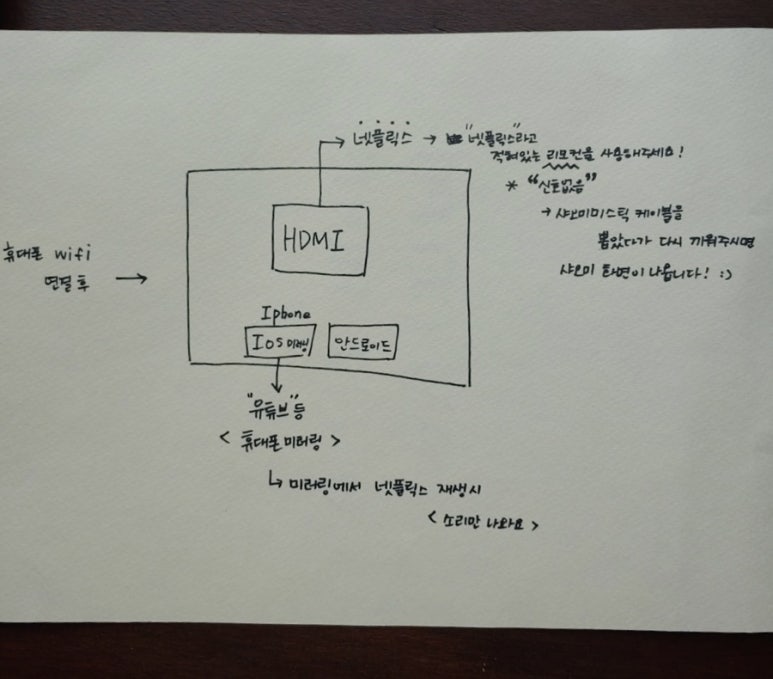 넷플릭스 → "넷플릭스"라고
적혀있는 리모컨을 사용해주세요!
* "신호없음"
→ 샤오미미스틱 케이블을
뽑았다가 다시 끼워주시면
샤오미 화면이 나옵니다! :)
HDMI
휴대폰 wifi
연결 후 →
Iphone
Ios 미러링
안드로이드
"유튜브"등
< 휴대폰 미러링 >
↳ 미러링에서 넷플릭스 재생시
< 소리만 나와요 >